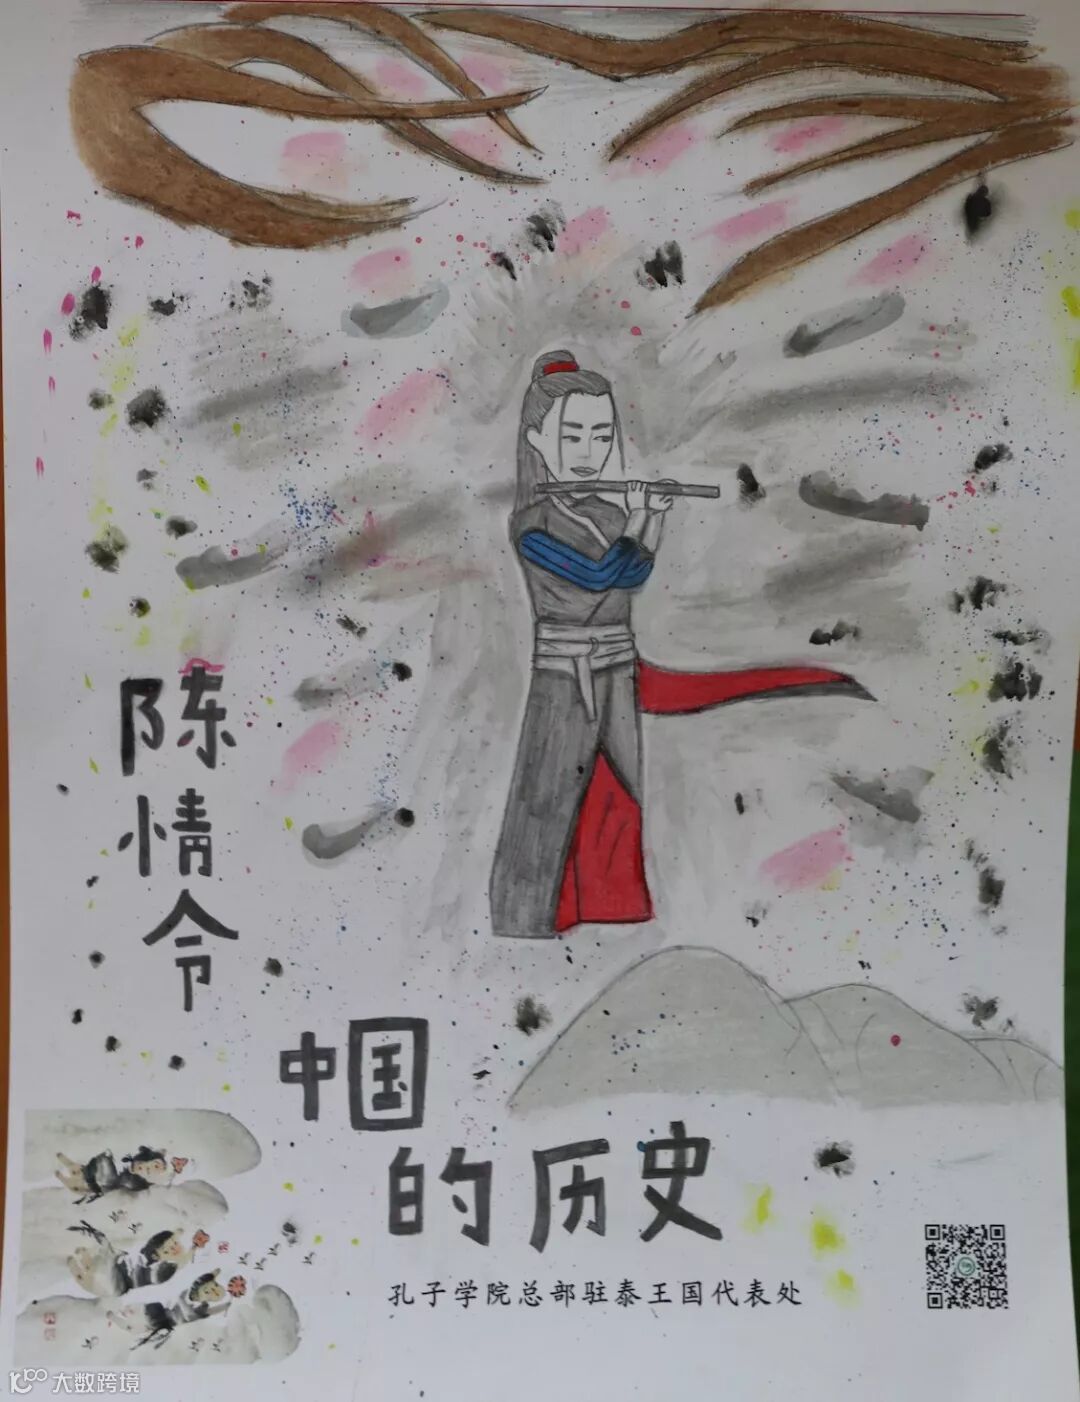 陈
情
令
中国
的历史
孔子学院总部驻泰王国代表处
大数跨境